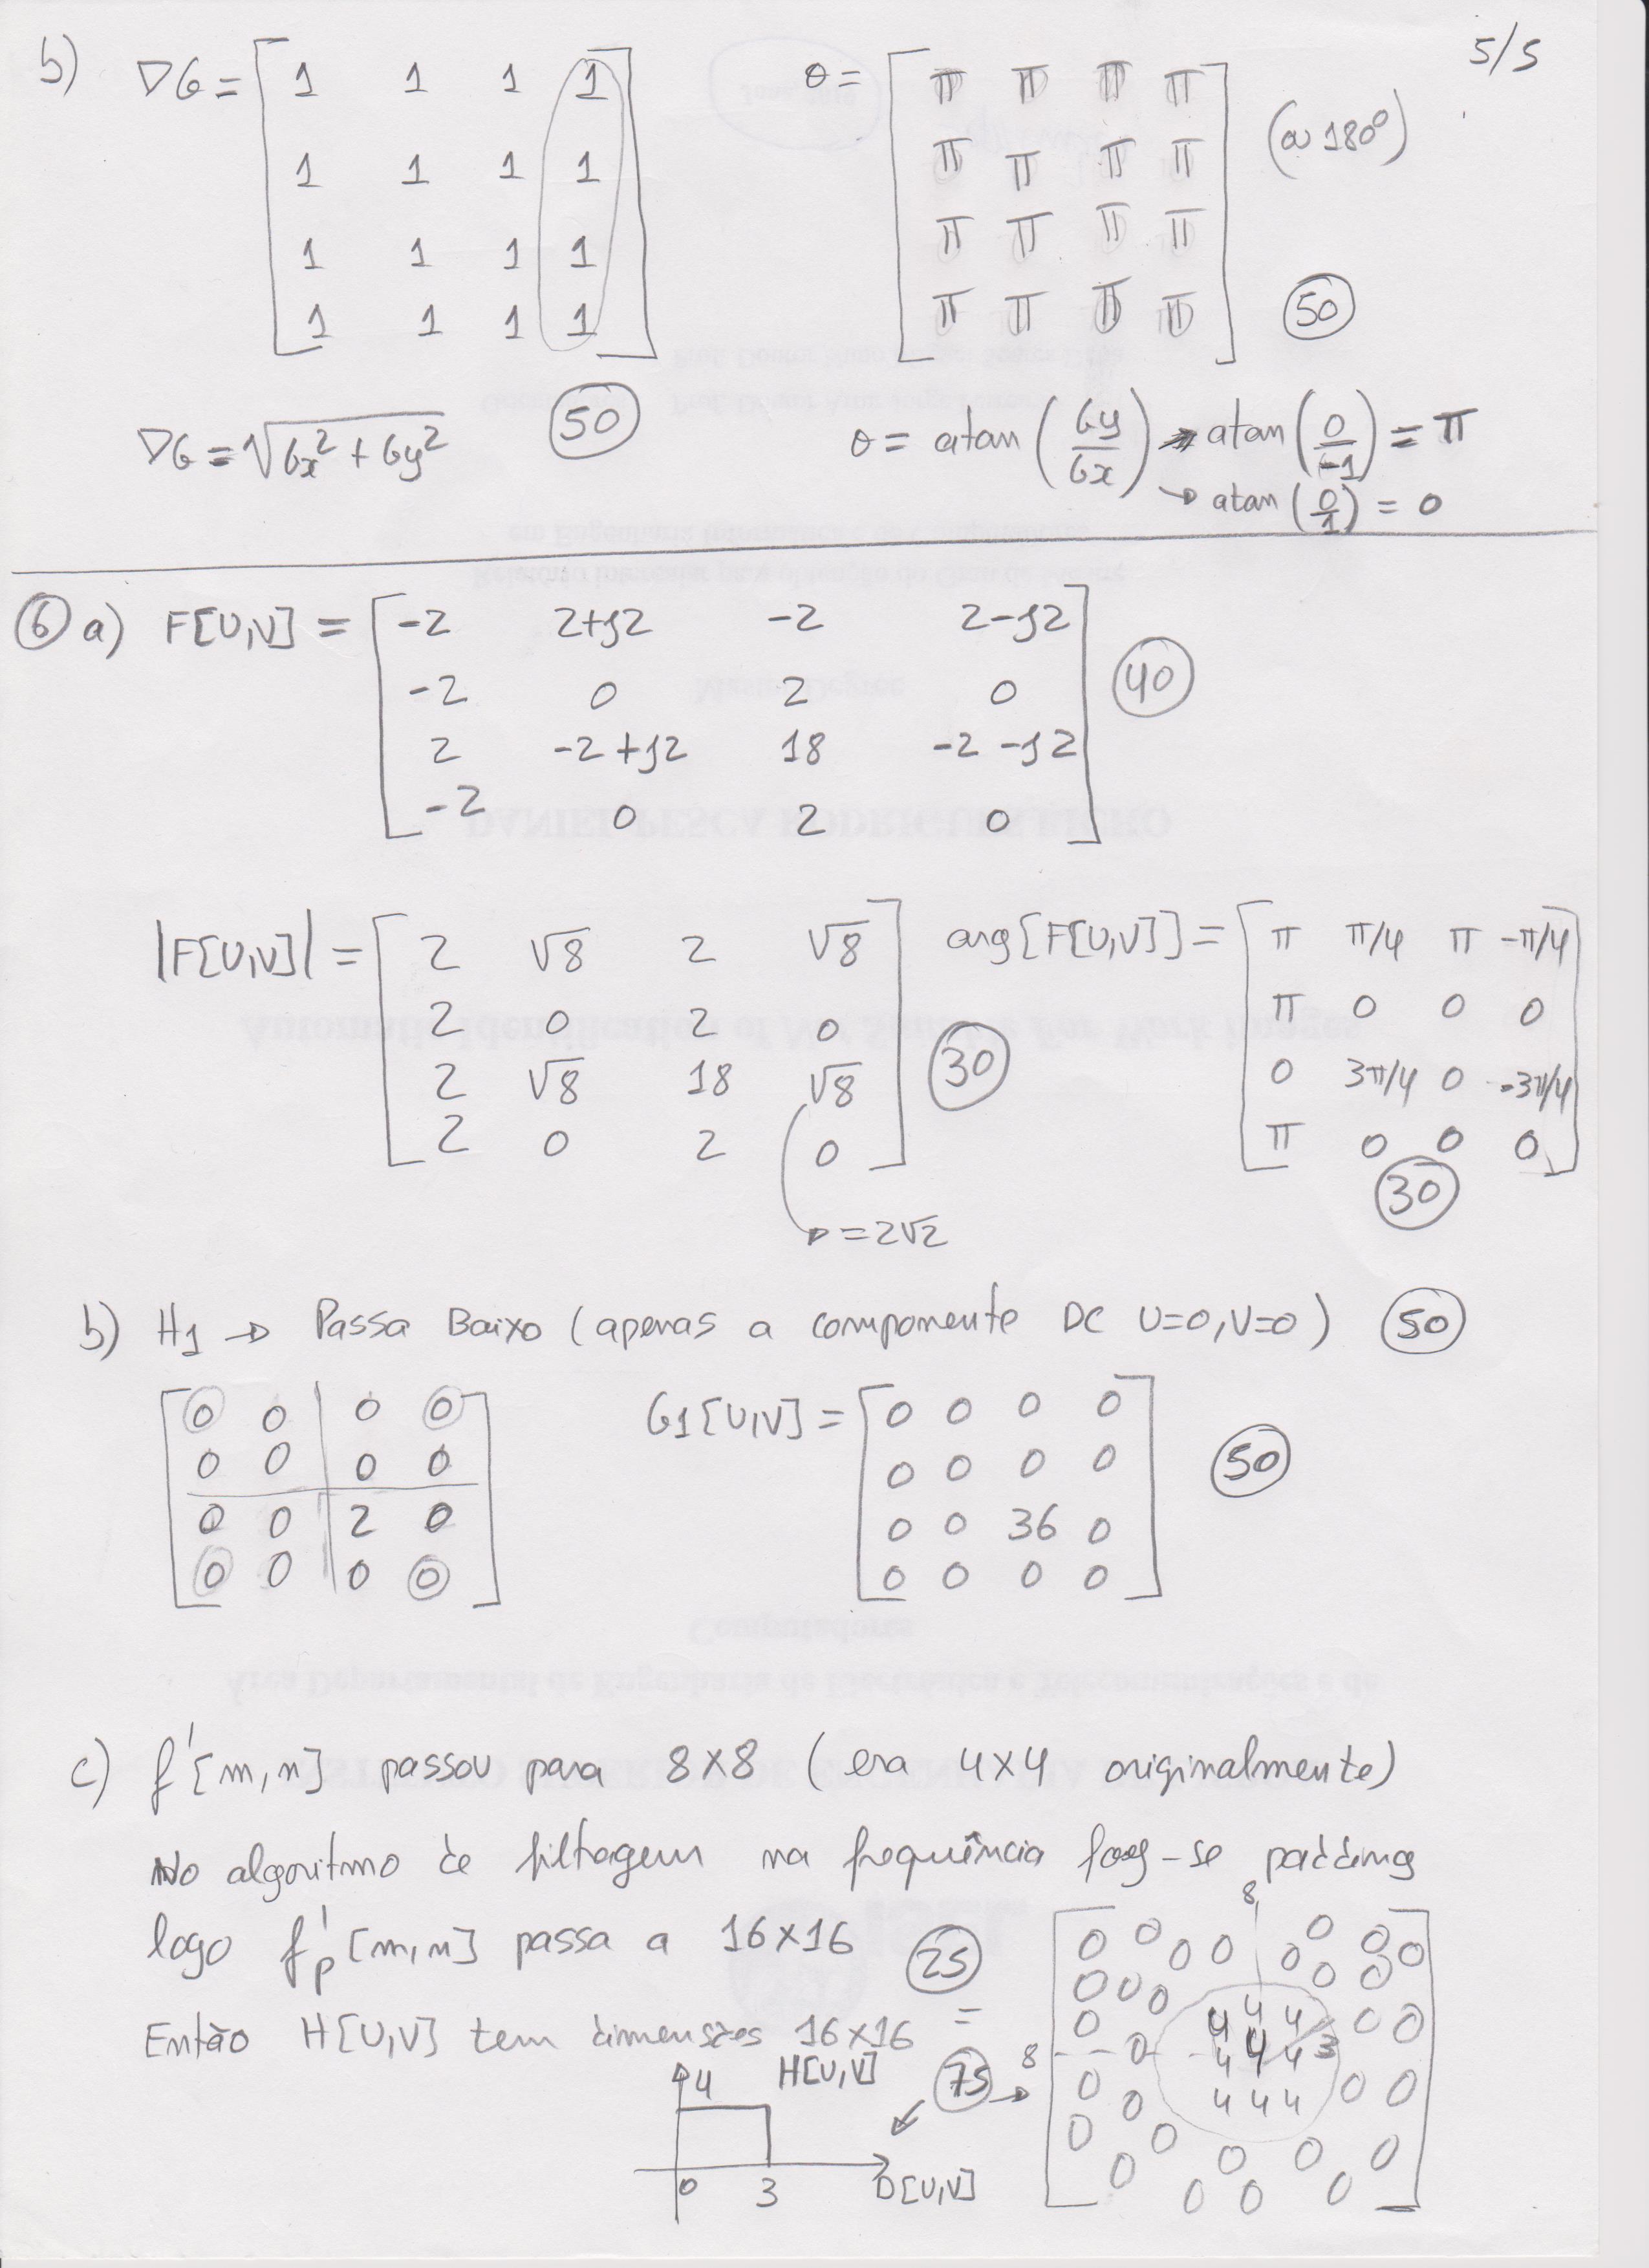 5/5
b) ∇G = [ 1 1 1 1
1 1 1 1
1 1 1 1
1 1 1 1 ]
θ = [ π π π π
π π π π
π π π π
π π π π ]
(ou 180º)
50
∇G = √(Gx² + Gy²)
50
θ = atan (Gy/Gx) → atan (0/-1) = π
→ atan (0/1) = 0
6 a) F[U,V] = [ -2 2+j2 -2 2-j2
-2 0 2 0
2 -2+j2 18 -2-j2
-2 0 2 0 ]
40
|F[U,V]| = [ 2 √8 2 √8
2 0 2 0
2 √8 18 √8
2 0 2 0 ]
30
→ = 2√2
arg[F[U,V]] = [ π π/4 π -π/4
π 0 0 0
0 3π/4 0 -3π/4
π 0 0 0 ]
30
b) H1 → Passa Baixo (apenas a componente DC U=0, V=0) 50
[ 0 0 0 0
0 0 0 0
0 0 2 0
0 0 0 0 ]
G1[U,V] = [ 0 0 0 0
0 0 0 0
0 0 36 0
0 0 0 0 ]
50
c) f'[m,n] passou para 8x8 (era 4x4 originalmente)
No algoritmo de filtragem na frequência faz-se padding
logo f'p[m,n] passa a 16x16 25
Então H[U,V] tem dimensões 16x16 =
75
4 H[U,V]
0 3 D[U,V]
8
8
0 0 0 0 0 0 0 0
0 0 0 0 0
0 4 4 4 0 0
0 4 4 4 3
0 4 4 4 0 0
0 0
0 0 0 0 0
0 0 0 0